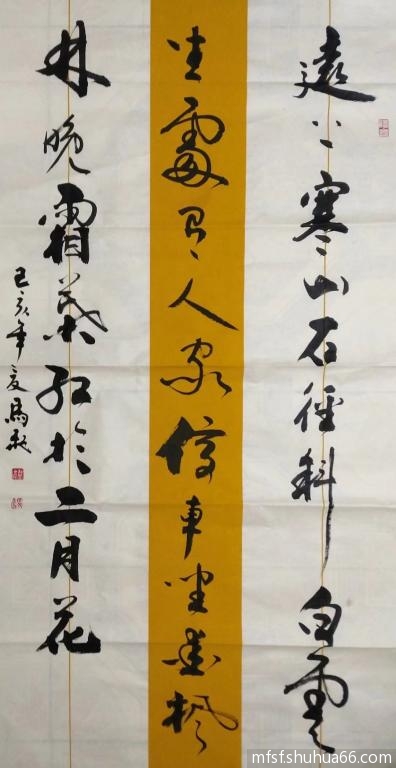 遠上寒山石徑斜白雲
生處有人家停車坐愛楓
林晚霜葉紅於二月花
己亥年夏馬
mfsf.shuhua66.com